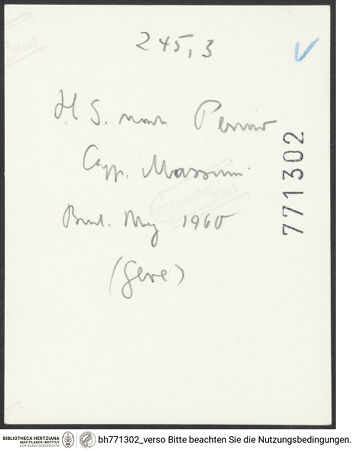 245,3
H S. nach Perino
Capp. Massimi
Burl. Mag 1960
(Gere)
771302
BIBLIOTHECA HERTZIANA
MAX-PLANCK-INSTITUT
FÜR KUNSTGESCHICHTE
bh771302_verso Bitte beachten Sie die Nutzungsbedingungen.